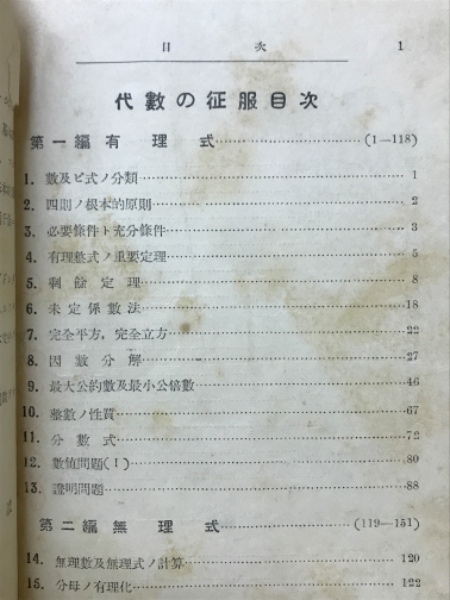 目 次 1
代數の征服目次
第一編 有理式 (1—118)
1. 數及ビ式ノ分類 1
2. 四則ノ根本的原則 2
3. 必要條件ト充分條件 3
4. 有理整式ノ重要定理 5
5. 剩餘定理 8
6. 未定係數法 18
7. 完全平方，完全立方 22
8. 因數分解 27
9. 最大公約數及最小公倍數 46
10. 整數ノ性質 67
11. 分數式 72
12. 數値問題(I) 80
13. 證明問題 88
第二編 無理式 (119—151)
14. 無理數及無理式ノ計算 120
15. 分母ノ有理化 122